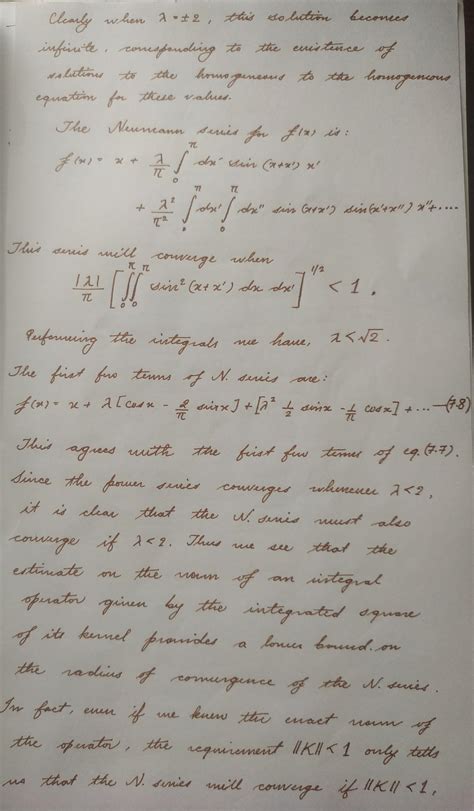 Clearly when λ = ±2, this solution becomes
infinite, corresponding to the existence of
solutions to the homogeneous to the homogeneous
equation for these values.
The Neumann series for f(x) is:
f(x) = x + λ/π ∫₀^π dx' sin (x+x') x'
+ λ²/π² ∫₀^π dx' ∫₀^π dx'' sin (x+x') sin(x'+x'') x'' + ....
This series will converge when
|λ|/π [∫₀^π ∫₀^π sin² (x+x') dx dx']^1/2 < 1.
Performing the integrals we have, λ < √2.
The first two terms of N. series are:
f(x) = x + λ [cosx - 2/π sinx] + [λ² 1/2 sinx - 1/π cosx] + ... —(7.8)
This agrees with the first few terms of eq. (7.7).
Since the power series converges whenever λ < 2,
it is clear that the N. series must also
converge if λ < 2. Thus we see that the
estimate on the norm of an integral
operator given by the integrated square
of its kernel provides a lower bound on
the radius of convergence of the N. series.
In fact, even if we knew the exact norm of
the operator, the requirement ||K|| < 1 only tells
us that the N. series will converge if ||K|| < 1,